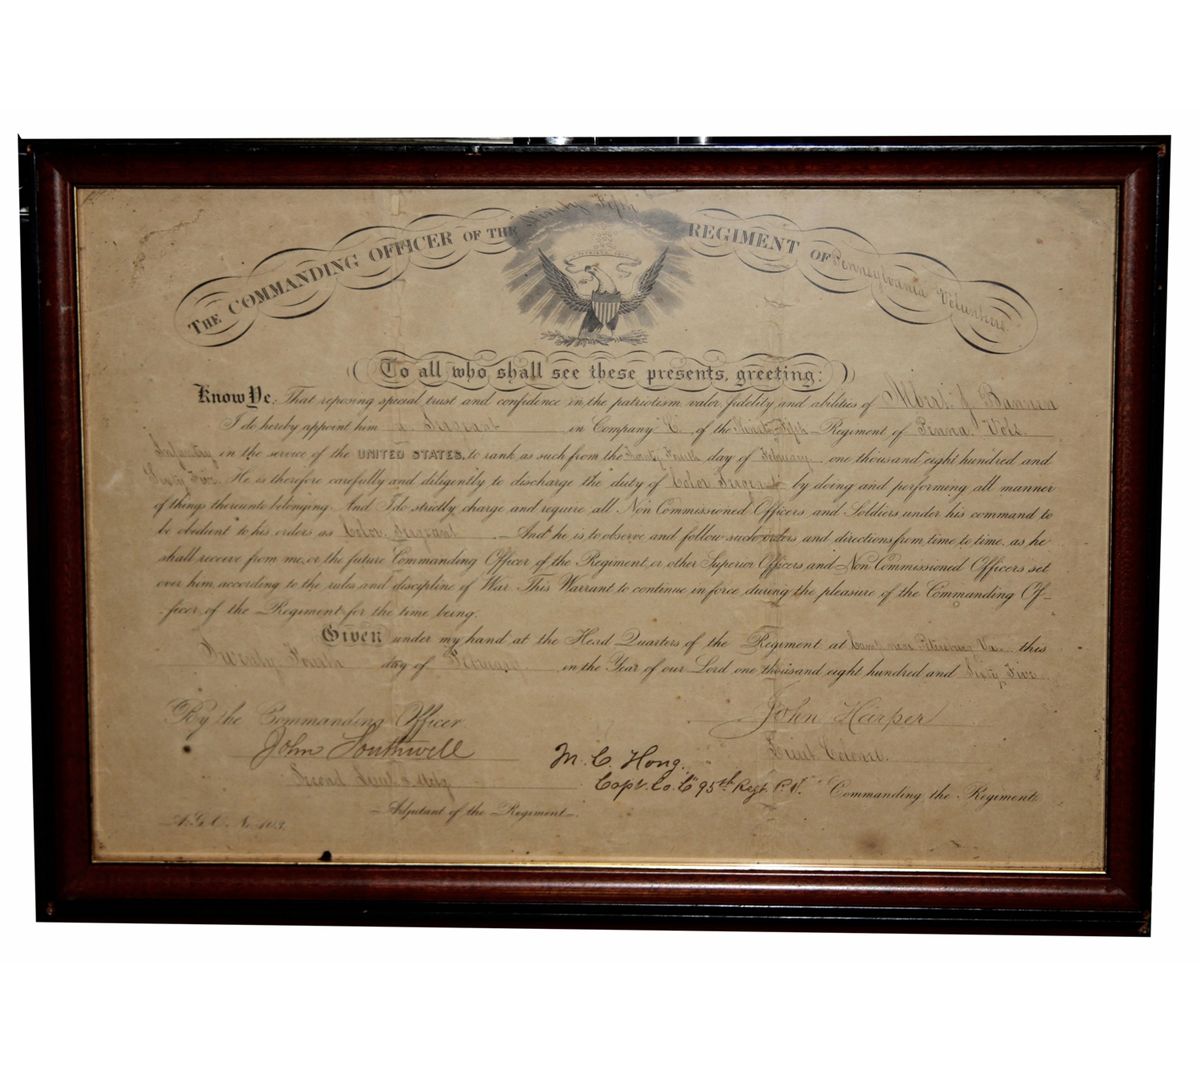 THE COMMANDING OFFICER OF THE Ninety Fifth REGIMENT OF Pennsylvania Volunteers
To all who shall see these presents, greeting:
Know Ye, That reposing special trust and confidence in the patriotism valor, fidelity and abilities of Albert J Bannen
I do hereby appoint him a Sergeant in Company C of the Ninety Fifth Regiment of Penna Vols.
Infantry in the service of the UNITED STATES, to rank as such from the Twenty Fourth day of February one thousand eight hundred and
Sixty Five. He is therefore carefully and diligently to discharge the duty of Color Sergeant by doing and performing all manner
of things thereunto belonging. And I do strictly charge and require all Non Commissioned Officers and Soldiers under his command to
be obedient to his orders as Color Sergeant And he is to observe and follow such orders and directions from time to time, as he
shall receive from me, or the future Commanding Officer of the Regiment, or other Superior Officers and Non Commissioned Officers set
over him, according to the rules and discipline of War. This Warrant to continue in force during the pleasure of the Commanding Of-
ficer, of the Regiment for the time being.
Given under my hand, at the Head Quarters of the Regiment at Camp near Petersburg Va. this
Twenty Fourth day of February in the Year of our Lord one thousand eight hundred and Sixty Five
By the Commanding Officer
John Harper
John Southwell
Lieut. Colonel
M. C. Hong.
Second Lieut &
Capt. Co. C 95th Regt P. V.
Commanding the Regiment.
Adjutant of the Regiment.
A.G.O. No. 103.